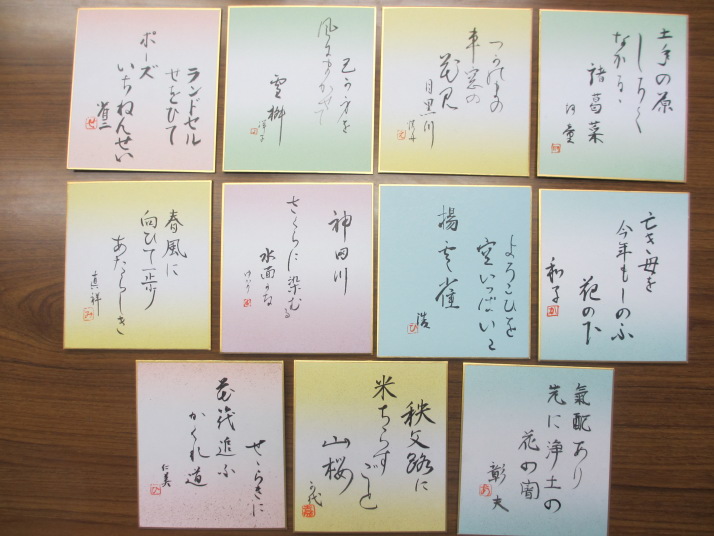 土手の原
しろく
ながるゝ
諸葛菜
つかのまの
車窓の
花見
目黒川
風にまかせて
洋子
ランドセル
せをひて
ポーズ
いちねんせい
省二
亡き母を
今年もしのふ
花の下
和子
よろこひを
空いっぱいに
揚雲雀
浩
神田川
さくらに染むる
水面かな
春風に
向ひて一歩
あたらしき
真祥
氣配あり
先に浄土の
花の闇
彰夫
秩父路に
米ちらすごと
山桜
せゝらきに
花筏追ふ
かくれ道
仁美